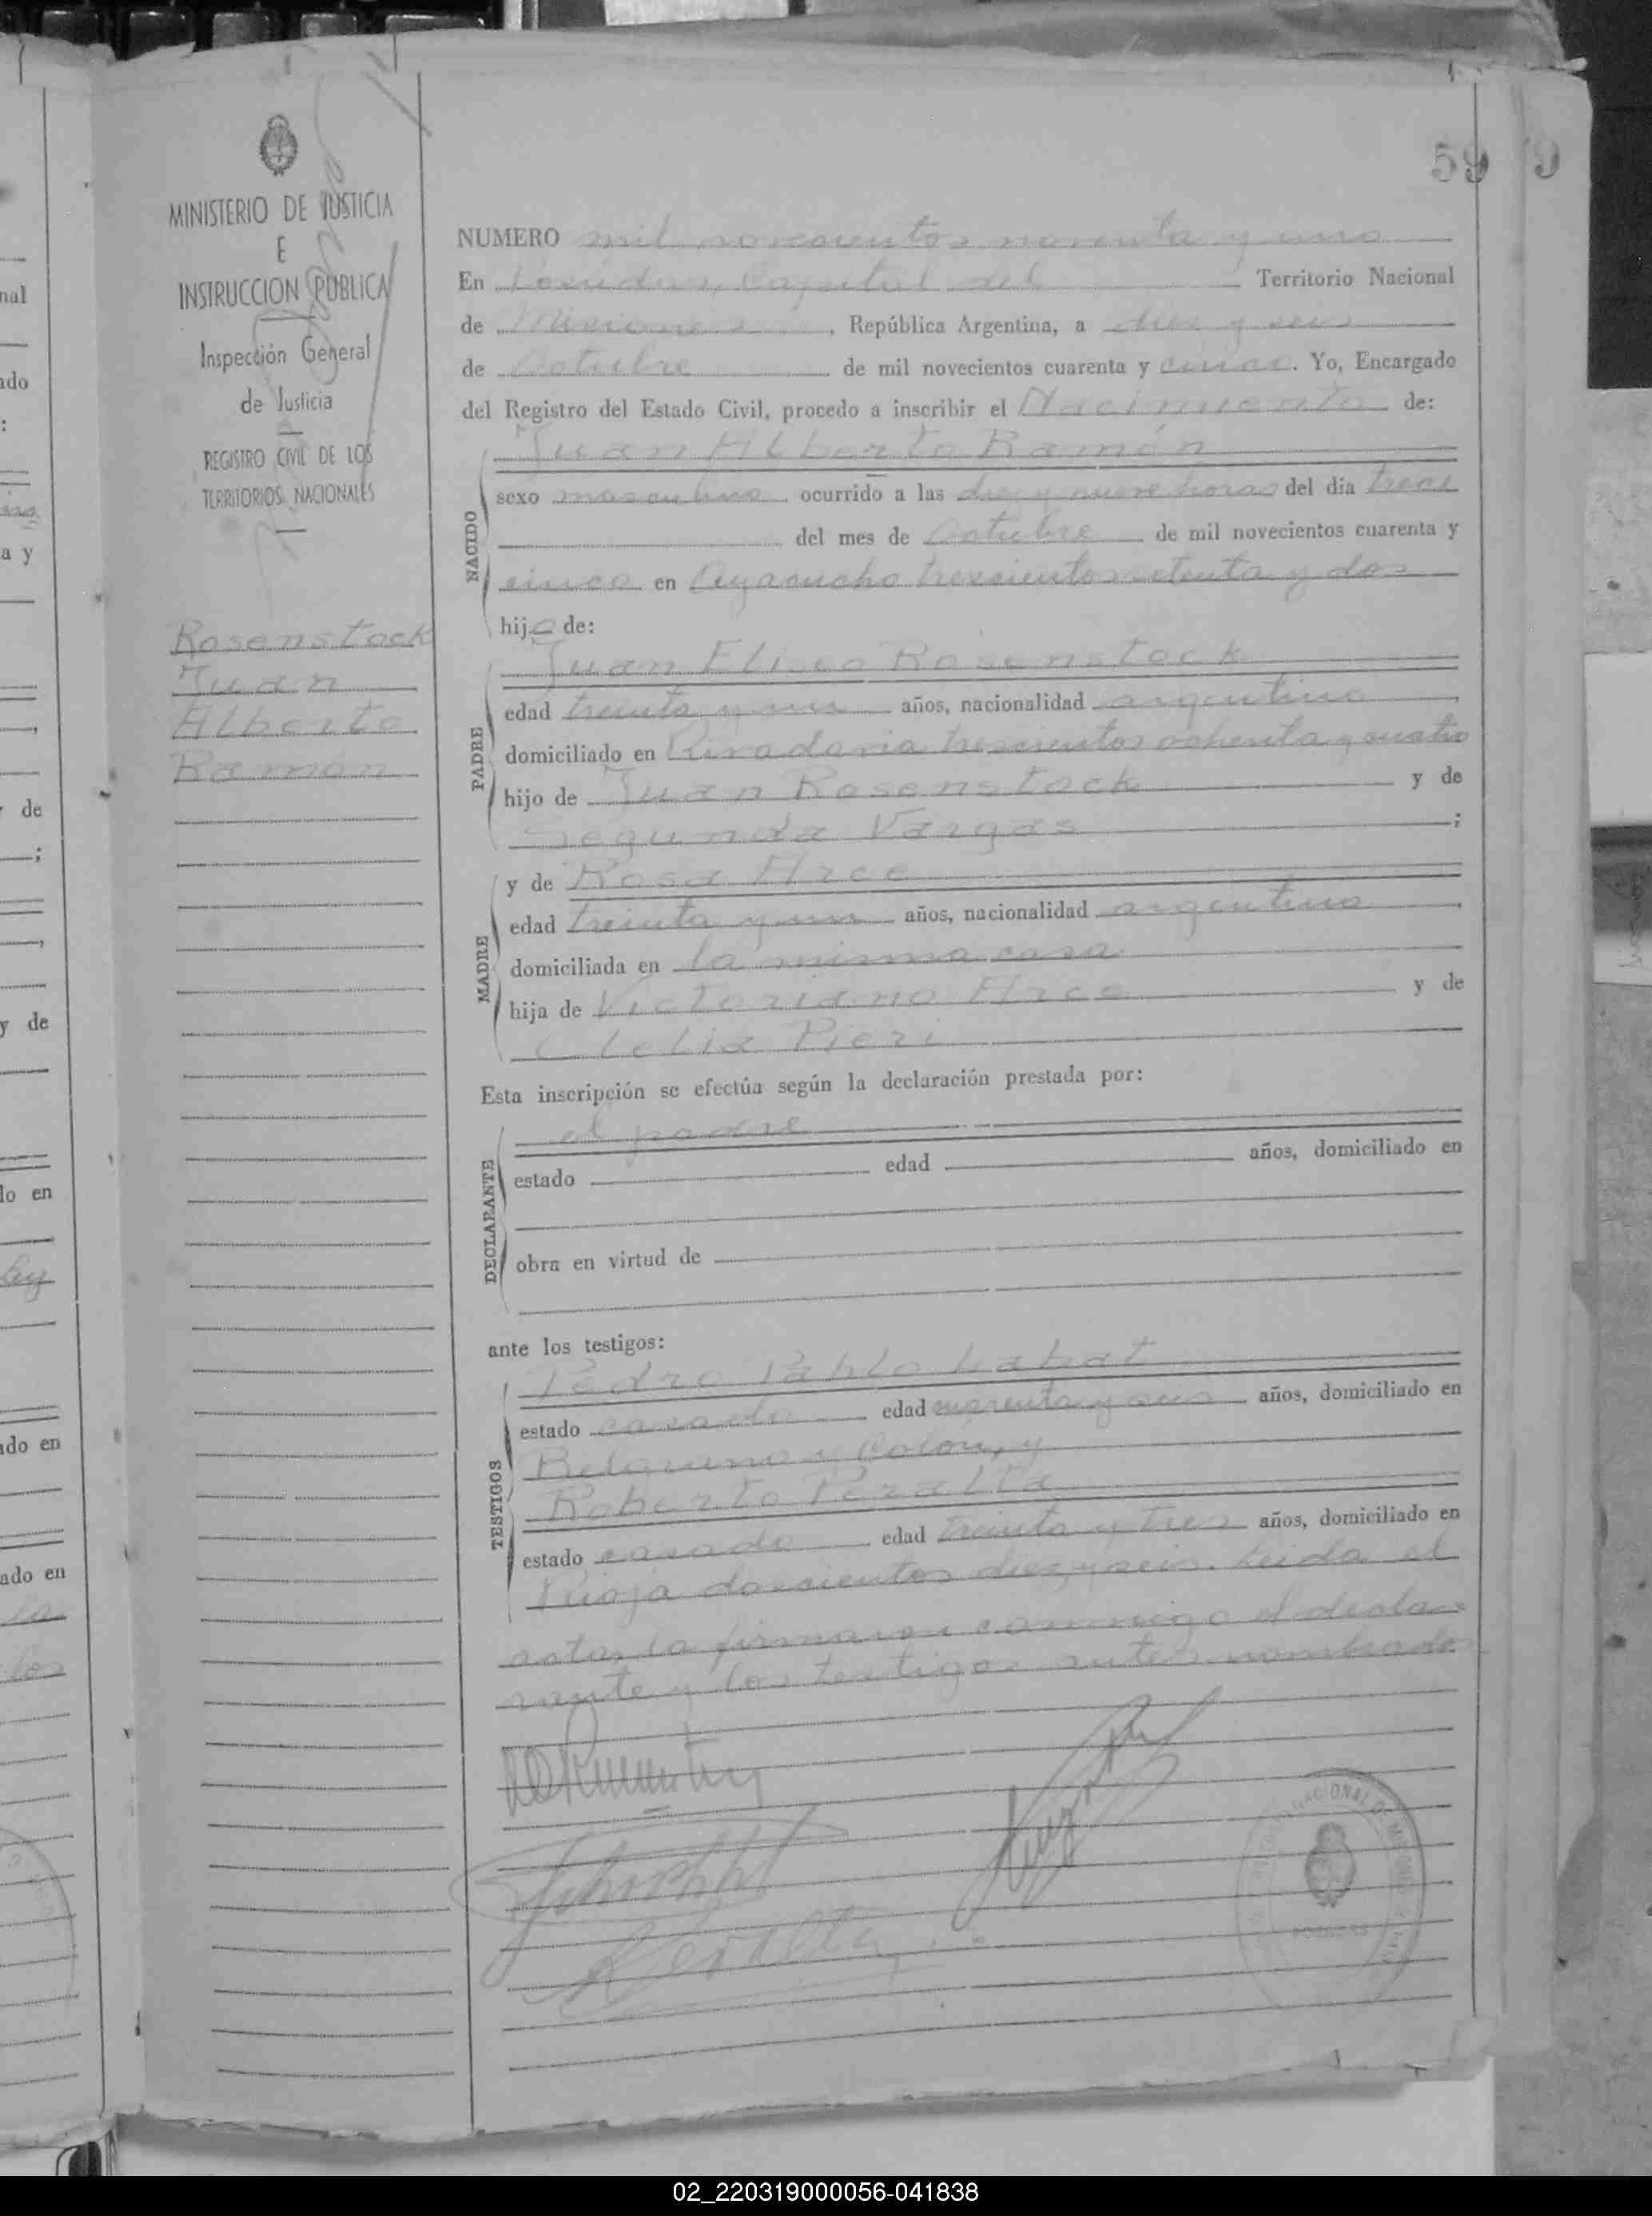 59 9
MINISTERIO DE JUSTICIA
E
INSTRUCCION PUBLICA
Inspección General
de Justicia
REGISTRO CIVIL DE LOS
TERRITORIOS NACIONALES
Rosenstock
Juan
Alberto
Ramón
NUMERO mil novecientos noventa y uno
En Posadas, Capital del Territorio Nacional
de Misiones, República Argentina, a diez y seis
de Octubre de mil novecientos cuarenta y cinco. Yo, Encargado
del Registro del Estado Civil, procedo a inscribir el Nacimiento de:
NACIDO
Juan Alberto Ramón
sexo masculino ocurrido a las diez y nueve horas del día trece
del mes de Octubre de mil novecientos cuarenta y
cinco en Ayacucho trescientos setenta y dos
hijo de:
PADRE
Juan Eliseo Rosenstock
edad treinta y un años, nacionalidad argentino,
domiciliado en Rivadavia trescientos ochenta y cuatro
hijo de Juan Rosenstock y de
Segunda Vargas;
MADRE
y de Rosa Arce
edad treinta y un años, nacionalidad argentina,
domiciliada en la misma casa
hija de Victoriano Arce y de
Clelia Pieri
Esta inscripción se efectúa según la declaración prestada por:
DECLARANTE
el padre
estado edad años, domiciliado en
obra en virtud de
ante los testigos:
TESTIGOS
Pedro Pablo Labat
estado casado edad cuarenta y seis años, domiciliado en
Belgrano y Colon, y
Roberto Peralta
estado casado edad treinta y tres años, domiciliado en
Rioja doscientos diez y seis. Leida el
acta, la firmaron conmigo el decla-
rante y los testigos antes nombrados
Peralta
POSADAS
nal
ado
:
a y
de
;
y de
lo en
Ley
ado en
ado en
la
los
02_220319000056-041838